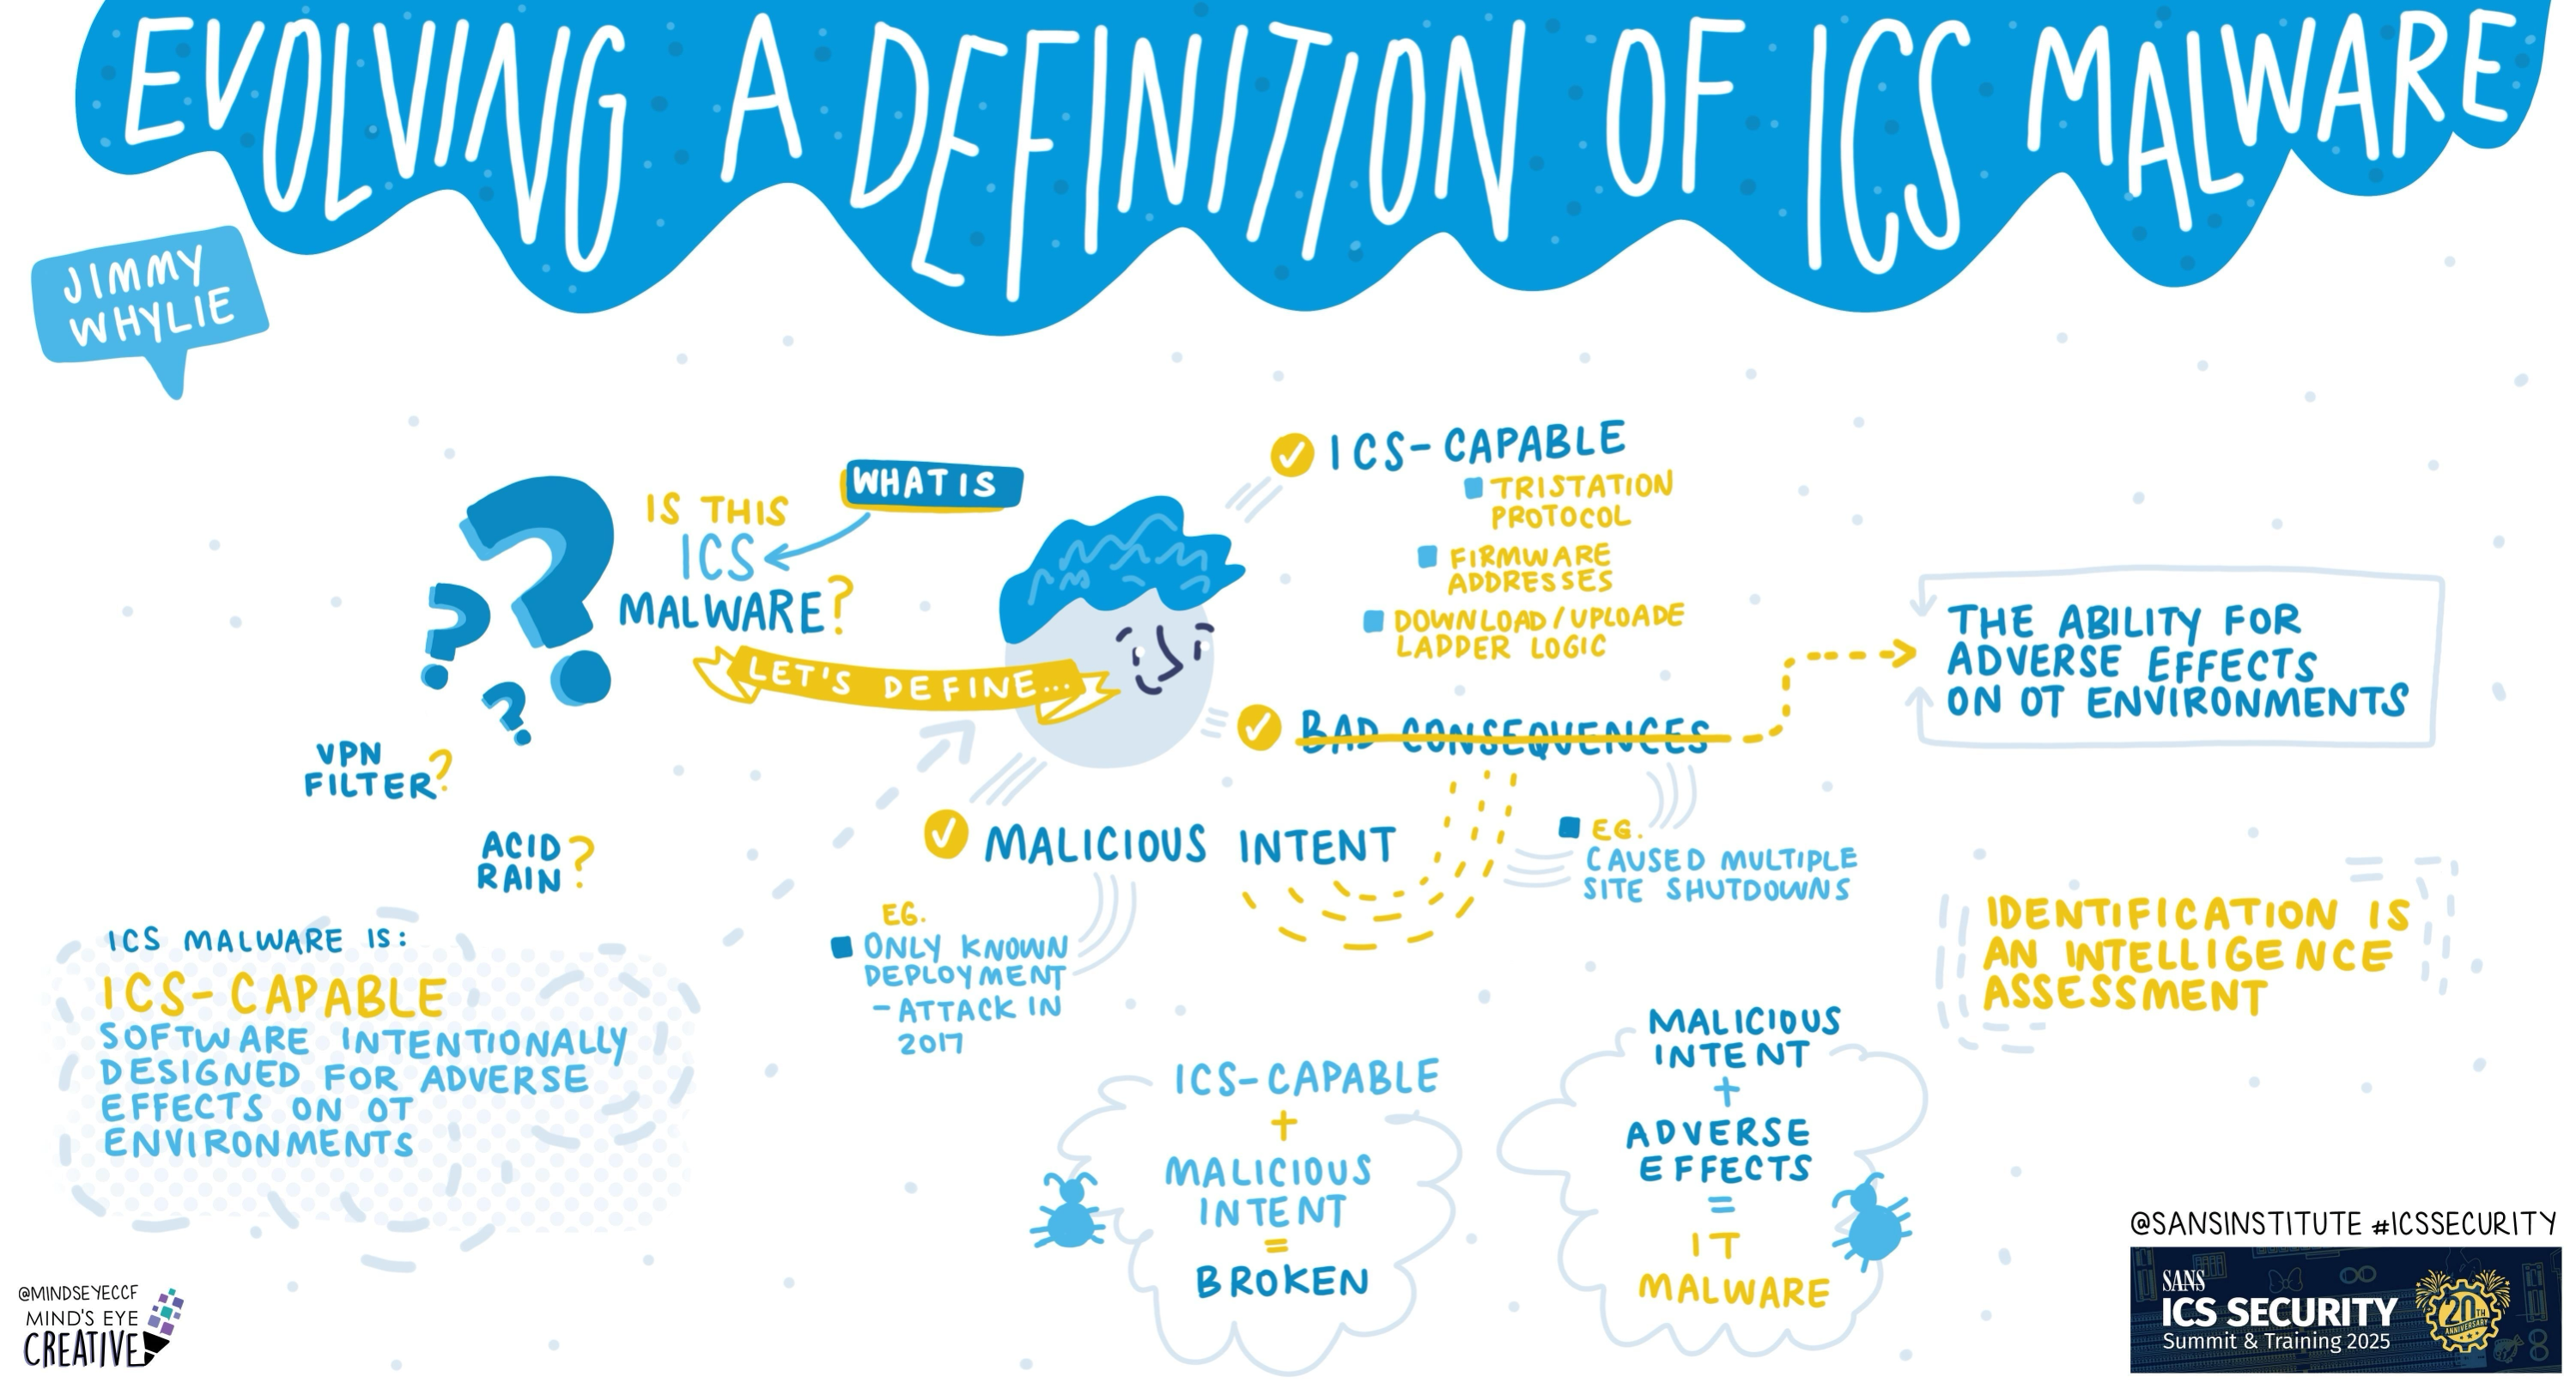 EVOLVING A DEFINITION OF ICS MALWARE
JIMMY
WHYLIE
WHAT IS
IS THIS
ICS
MALWARE?
LET'S DEFINE...
VPN
FILTER?
ACID
RAIN?
ICS MALWARE IS:
ICS-CAPABLE
SOFTWARE INTENTIONALLY
DESIGNED FOR ADVERSE
EFFECTS ON OT
ENVIRONMENTS
ICS-CAPABLE
TRISTATION
PROTOCOL
FIRMWARE
ADDRESSES
DOWNLOAD/UPLOADE
LADDER LOGIC
BAD CONSEQUENCES
THE ABILITY FOR
ADVERSE EFFECTS
ON OT ENVIRONMENTS
EG.
CAUSED MULTIPLE
SITE SHUTDOWNS
MALICIOUS INTENT
EG.
ONLY KNOWN
DEPLOYMENT
-ATTACK IN
2017
ICS-CAPABLE
+
MALICIOUS
INTENT
=
BROKEN
MALICIOUS
INTENT
+
ADVERSE
EFFECTS
=
IT
MALWARE
IDENTIFICATION IS
AN INTELLIGENCE
ASSESSMENT
@MINDSEYECCF
MIND'S EYE
CREATIVE
@SANSINSTITUTE #ICSSECURITY
SANS
ICS SECURITY
Summit & Training 2025
20TH
ANNIVERSARY